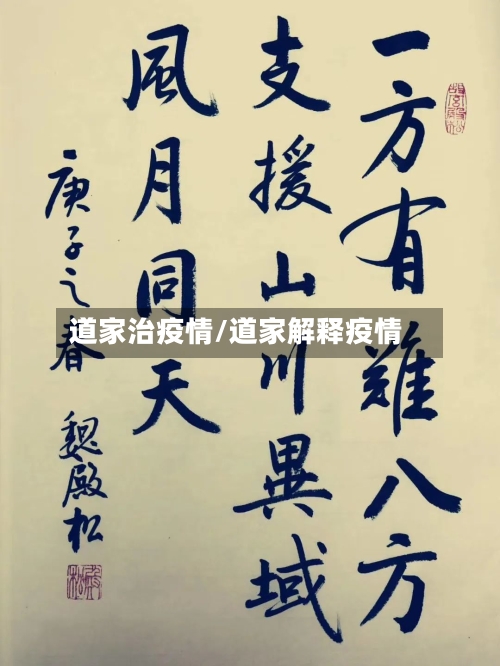 一方有難八方
支援山川異域
風月同天
庚子之春 魏殿松
道家治疫情/道家解释疫情